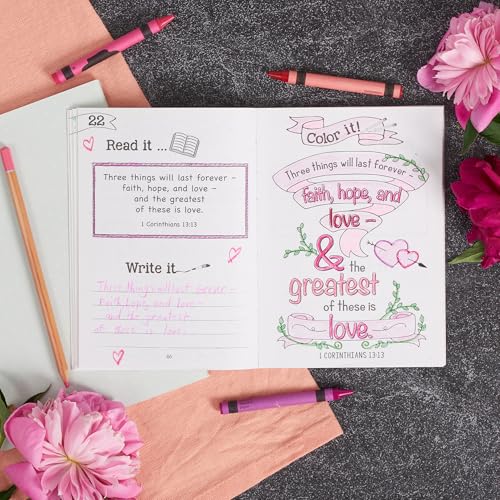 22
Read it ...
Three things will last forever –
faith, hope, and love –
and the greatest
of these is love.
1 Corinthians 13:13
Write it
Three things will last forever –
faith, hope, and love –
and the greatest
of these is love.
66
Color it!
Three things will last forever
faith, hope, and
love –
& the
greatest
of these is
love.
1 CORINTHIANS 13:13